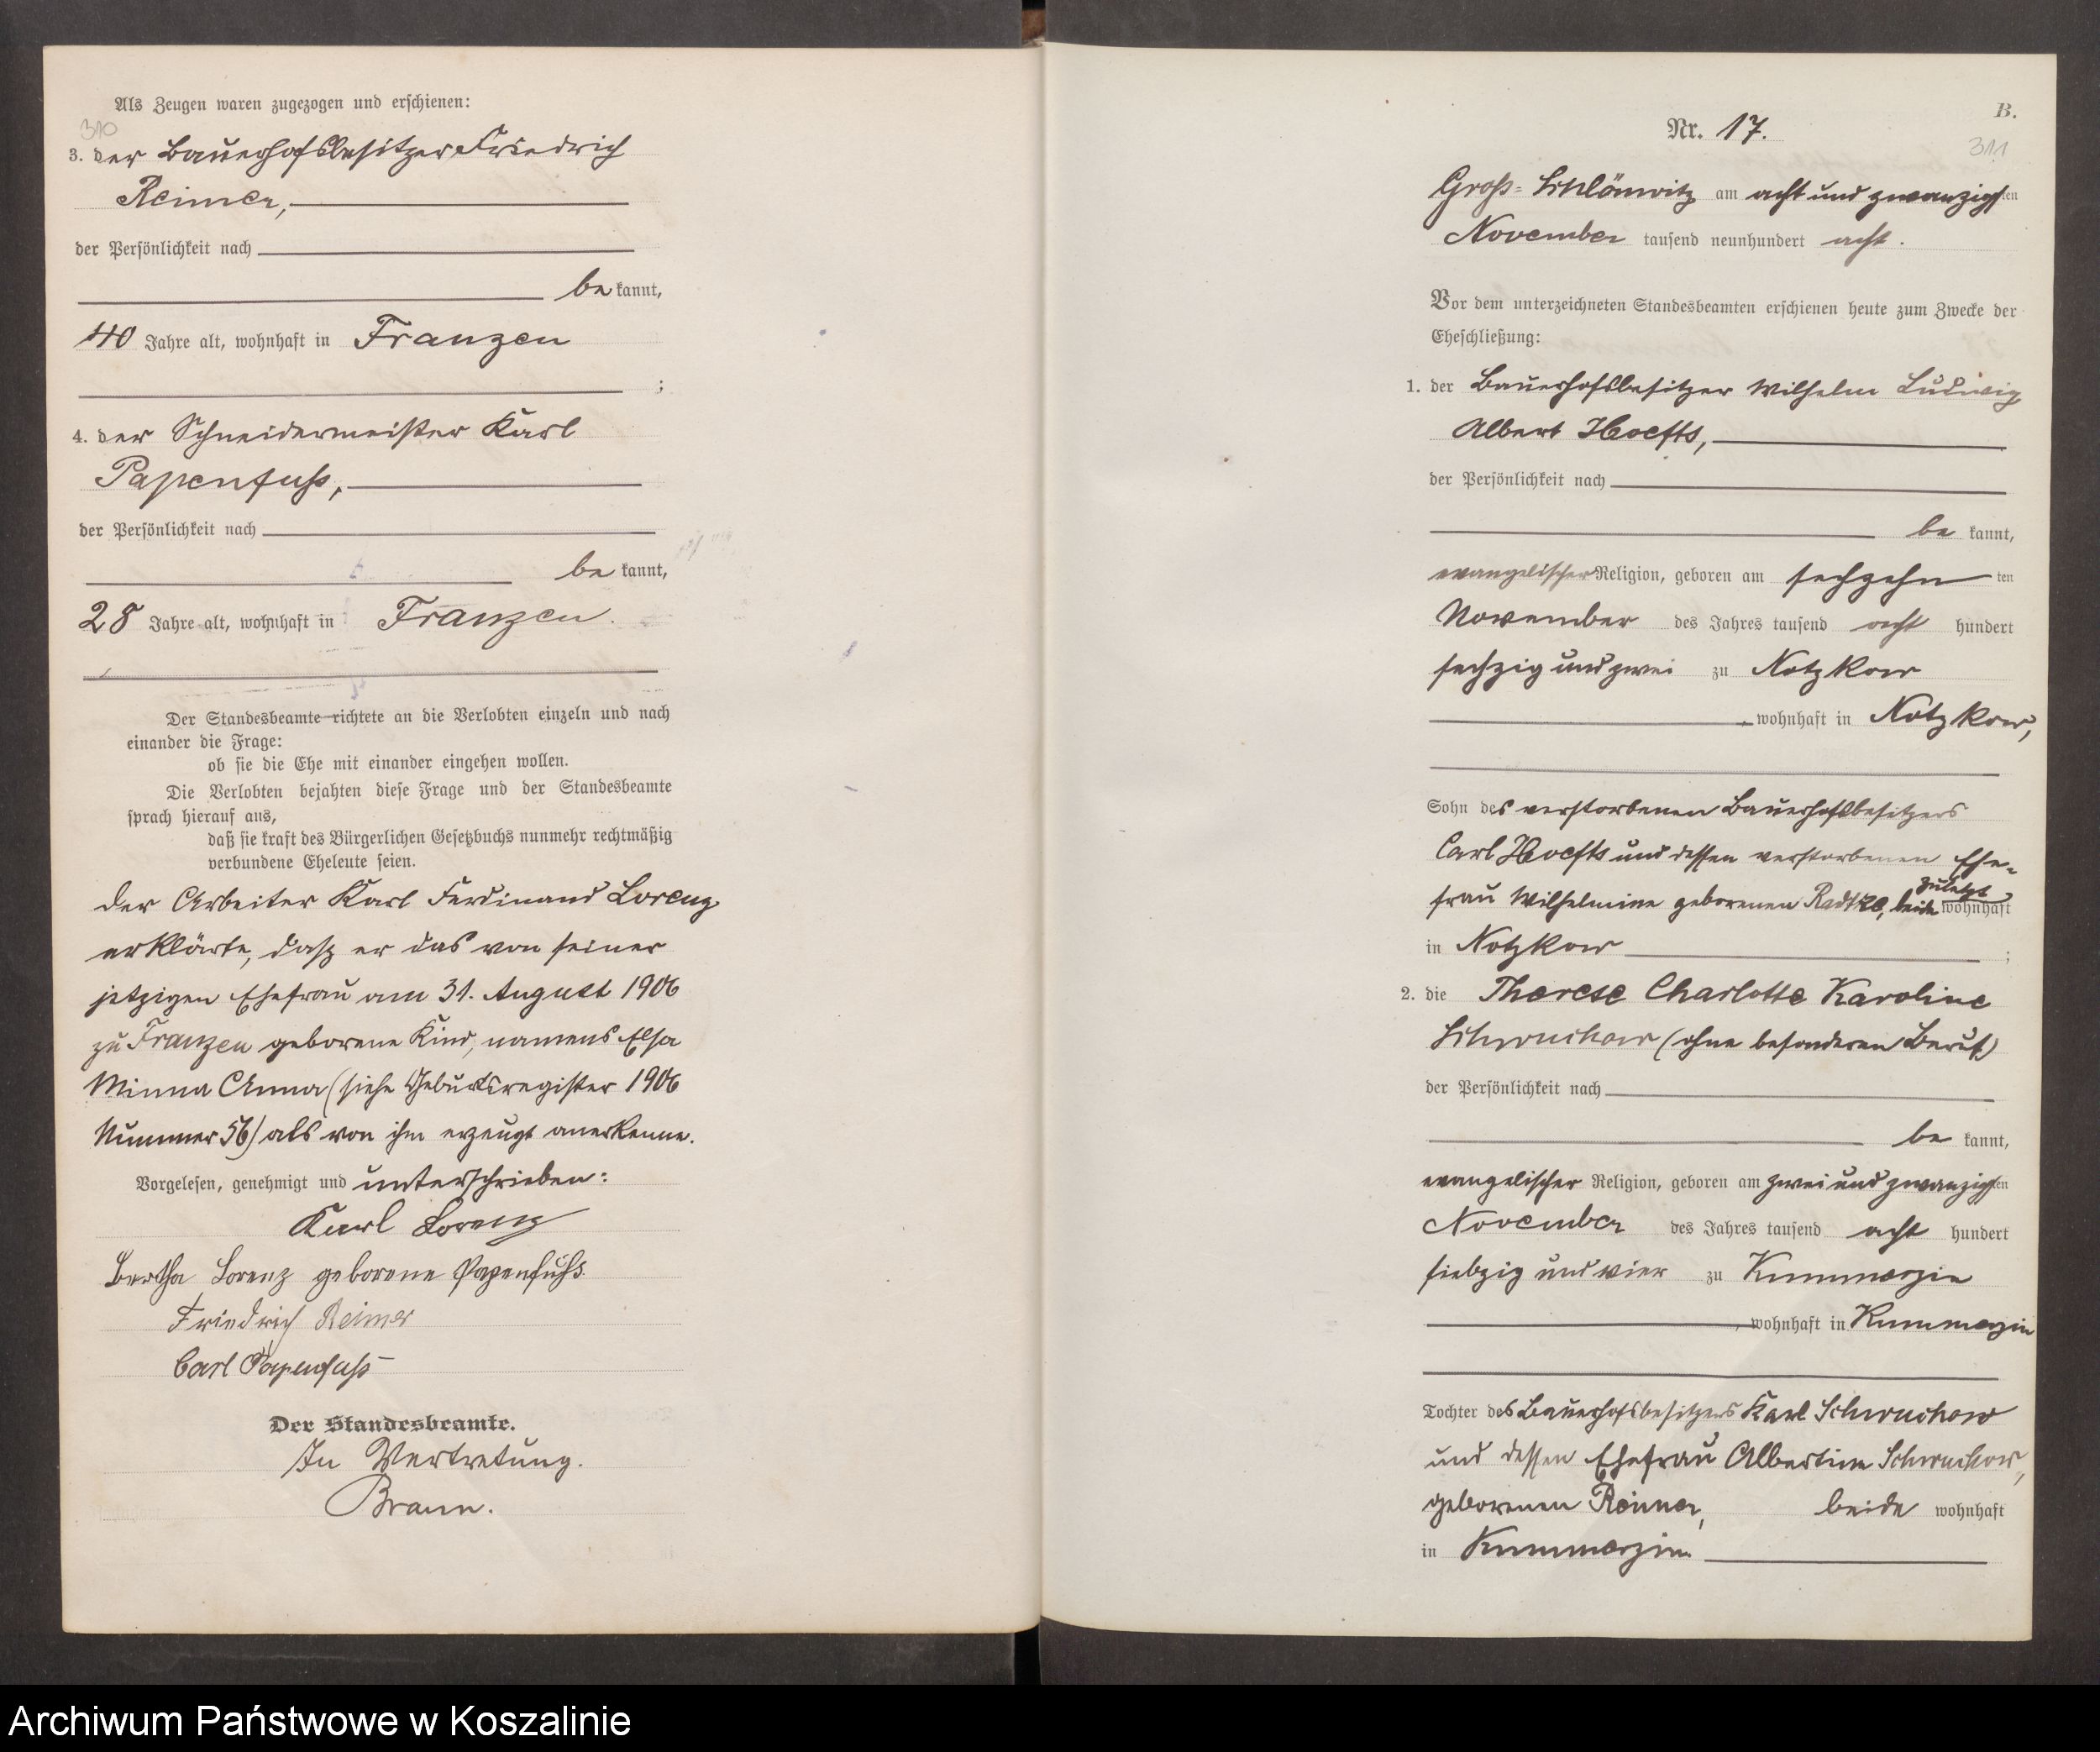 Als Zeugen waren zugezogen und erschienen:
310
3. der Bauerhofsbesitzer Friedrich
Reimer,
der Persönlichkeit nach
be kannt,
40 Jahre alt, wohnhaft in Franzen
;
4. der Schneidermeister Karl
Papenfuß,
der Persönlichkeit nach
be kannt,
28 Jahre alt, wohnhaft in Franzen.
Der Standesbeamte richtete an die Verlobten einzeln und nach
einander die Frage:
ob sie die Ehe mit einander eingehen wollen.
Die Verlobten bejahten diese Frage und der Standesbeamte
sprach hierauf aus,
daß sie kraft des Bürgerlichen Gesetzbuchs nunmehr rechtmäßig
verbundene Eheleute seien.
Der Arbeiter Karl Ferdinand Lorenz
erklärte, daß er das von seiner
jetzigen Ehefrau am 31. August 1906
zu Franzen geborene Kind, namens Elsa
Minna Anna (siehe Geburtsregister 1906
Nummer 56) als von ihm erzeugt anerkenne.
Vorgelesen, genehmigt und unterschrieben:
Karl Lorenz
Bertha Lorenz geborene Papenfuß
Friedrich Reimer
Carl Papenfuß
Der Standesbeamte.
In Vertretung.
Braun.
B.
Nr. 17.
311
Groß-Schlönwitz am acht und zwanzigsten
November tausend neunhundert acht.
Vor dem unterzeichneten Standesbeamten erschienen heute zum Zwecke der
Eheschließung:
1. der Bauerhofsbesitzer Wilhelm Ludwig
Albert
der Persönlichkeit nach
be kannt,
evangelischer Religion, geboren am sechzehn ten
November des Jahres tausend acht hundert
sechzig und zwei zu Notzkow
, wohnhaft in Notzkow,
Sohn des verstorbenen Bauerhofsbesitzers
Carl und dessen verstorbenen Ehe-
frau Wilhelmine geborenen Radtke, beide zuletzt wohnhaft
in Notzkow ;
2. die Therese Charlotte Karoline
Schwuchow (ohne besonderen Beruf)
der Persönlichkeit nach
be kannt,
evangelischer Religion, geboren am zwei und zwanzigsten
November des Jahres tausend acht hundert
siebzig und vier zu Kummerzin
, wohnhaft in Kummerzin
Tochter des Bauerhofsbesitzers Karl Schwuchow
und dessen Ehefrau Albertine Schwuchow,
geborenen Reimer, beide wohnhaft
in Kummerzin
Archiwum Państwowe w Koszalinie